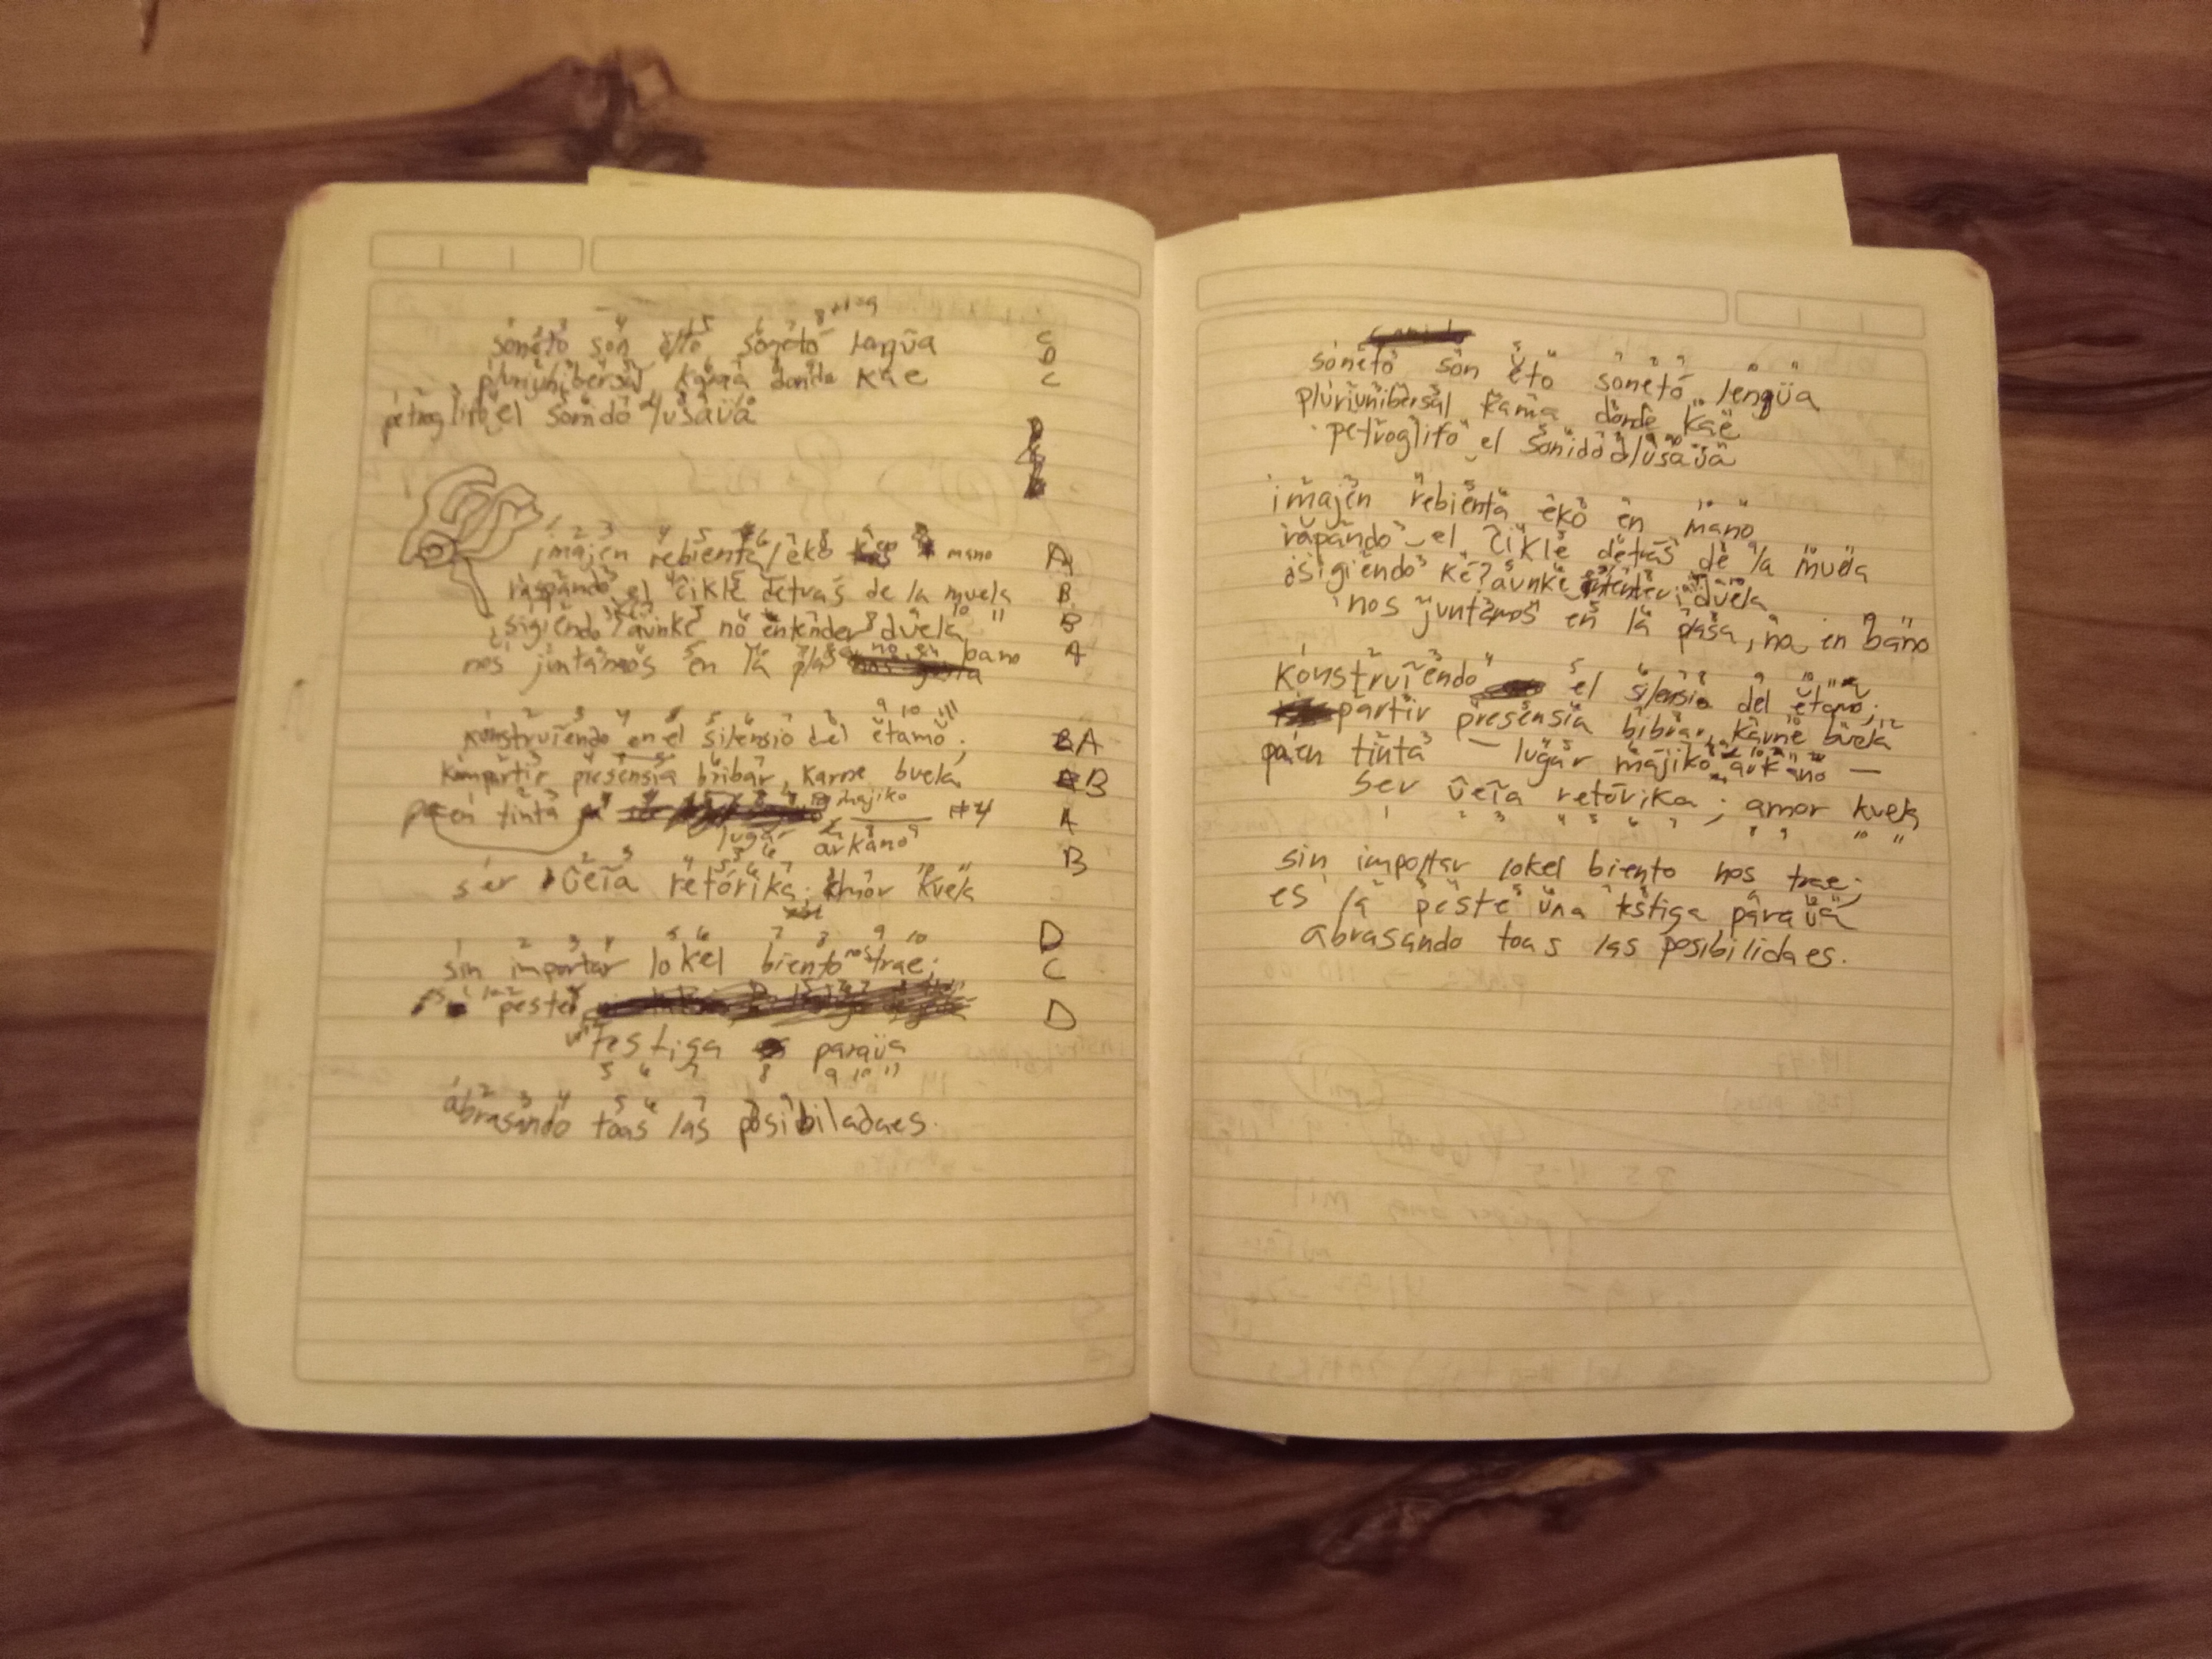 soneto son eto soneto lengüa
pluriunibersal kama donde kae
petroglifo el sonido
C
D
C
imajen rebienta eko en mano
raspando el čikle detras de la muela
¿sigiendo? aunke no entender duela
nos juntamos en la plasa no en bano
A
B
B
A
konstruiendo en el silensio del etamo;
kompartir presensia bibar, karne buela
pa en tinta
majiko
#4
lugar arkano
ser retórika; amor kuela
A
B
A
B
sin importar lokel biento nos trae;
peste
testiga paraüa
abrasando toas las posibiladaes.
D
C
D
soneto son eto soneto lengüa
pluriunibersal kama donde kae
petroglifo el sonido
imajen rebienta eko en mano
rapando el čikle detras de la muela
¿sigiendo ké? aunke duela
nos juntamos en la plasa, no en bano
konstruiendo el silensio del etamo;
partir presensia bibrar, karne buela
pa en tinta — lugar majiko arkano —
ser retórika; amor kuela
sin importar lokel biento nos trae;
es la peste una testiga paraüa
abrasando toas las posibilidaes.